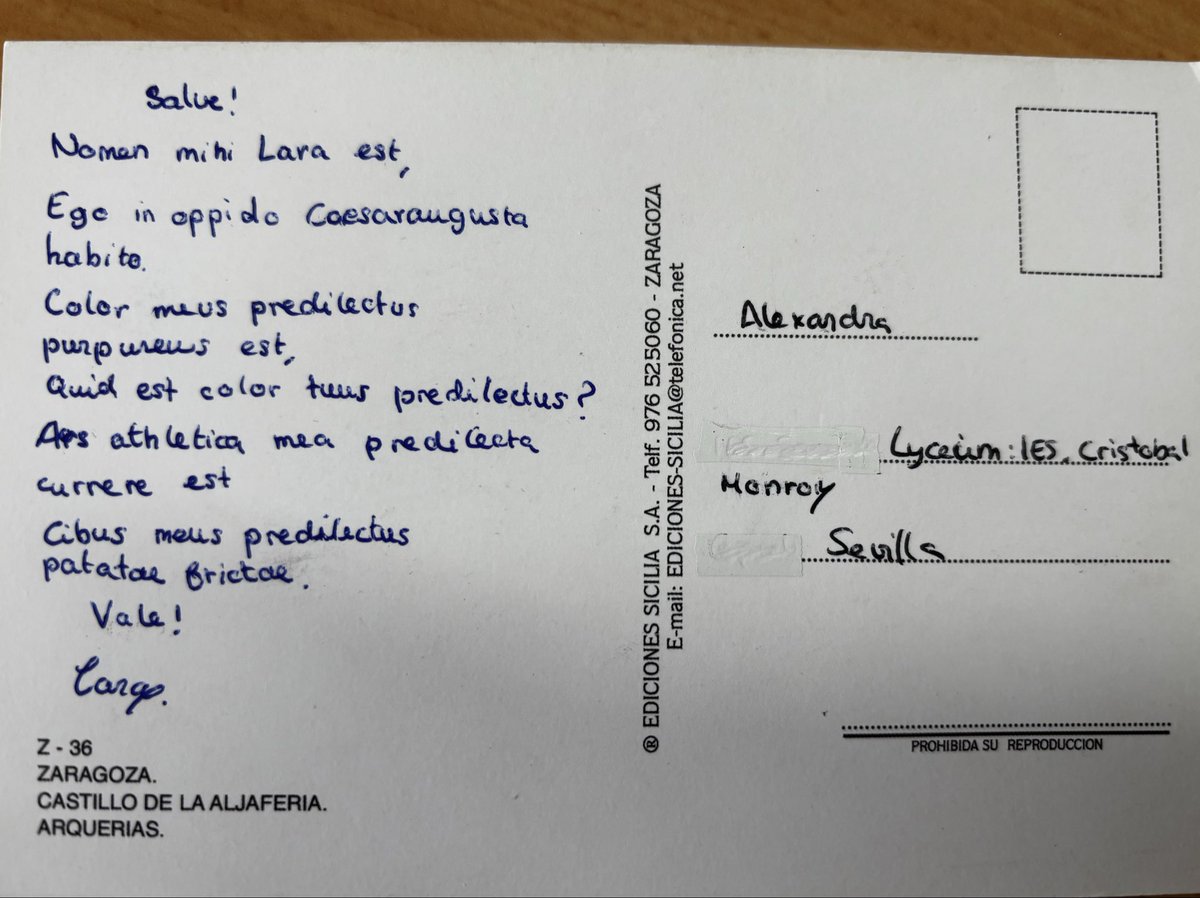 Salve!
Nomen mihi Lara est,
Ego in oppido Caesaraugusta
habito.
Color meus predilectus
purpureus est,
Quid est color tuus predilectus?
Ars athletica mea predilecta
currere est
Cibus meus predilectus
patatae frictae.
Vale!
Z - 36
ZARAGOZA.
CASTILLO DE LA ALJAFERIA.
ARQUERIAS.
® EDICIONES SICILIA S.A. - Telf. 976 525060 - ZARAGOZA
E-mail: EDICIONES-SICILIA@telefonica.net
Alexandra
Lyceum: IES. Cristobal
Monroy
Sevilla
PROHIBIDA SU REPRODUCCION